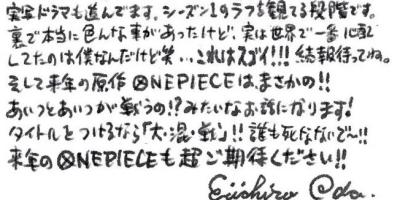 実写ドラマも進んでます。シーズン1のラフを観てる段階です。
裏で本当に色んな事があったけど、実は世界で一番心配
してたのは僕なんだけど笑…これはスゴイ!!! 続報待ってね。
そして来年の原作ONEPIECEは、まさかの!!
あいつとあいつが戦うの!?みたいなお話になります!
タイトルをつけるなら「大・混・戦」!! 誰も死なないで〜!!
来年のONEPIECEも超ご期待ください!!
Eiichiro Oda.